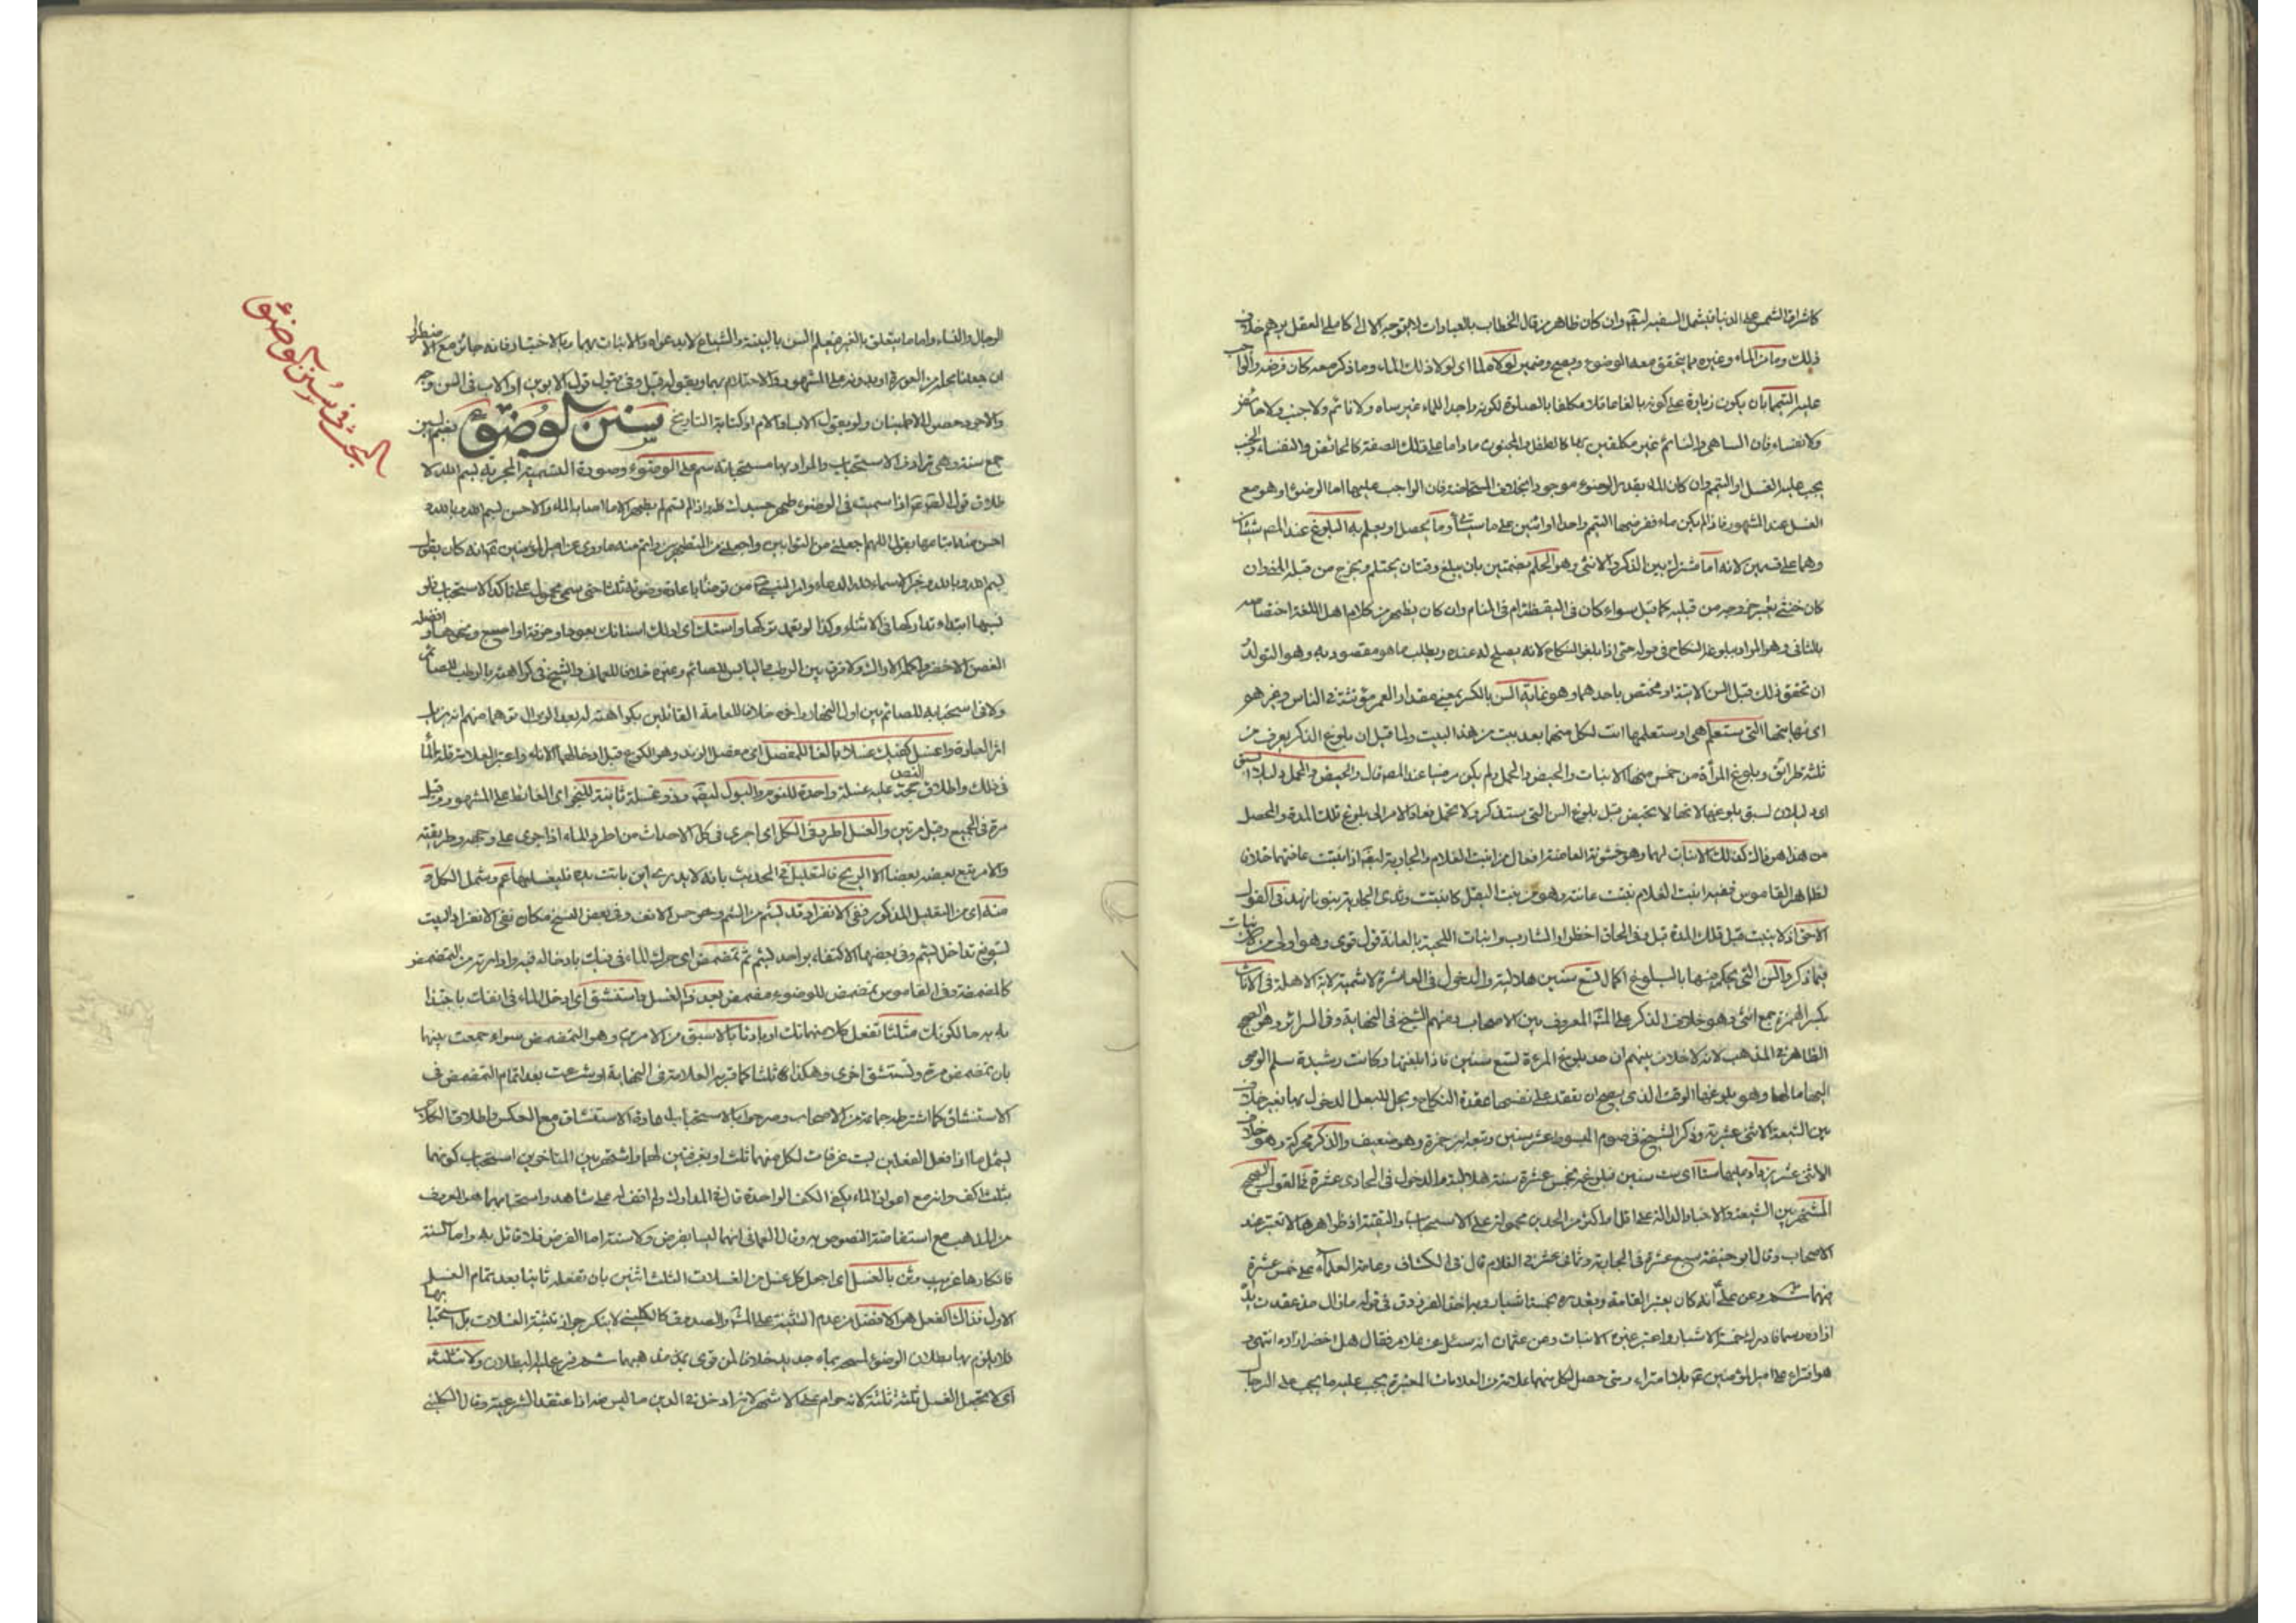 كاشراق الشمس على الدنيا فيشمل السفيه لبقه وان كان ظاهر من قال الخطاب بالعبادات لا يتوجه الا الى كاملى العقل يوهم خلاف
ذلك وما من الماء وغيره مما يتحقق معه الوضوء ويصح وضمير لولاه لما اى لولا ذلك الماء وما ذكر معه كان فرضه والواجب
عليه التيمم بان يكون زيادة على كونه بالغا عاقلا مكلفا بالصلوة لكونه واجد الماء غير ساه ولا نائم ولا جنب ولا حائض
ولا نفساء فان الساهى والنائم غير مكلفين بها كالطفل والمجنون ماداما على تلك الصفة كالحائض والنفساء والجنب
يجب عليه الغسل او التيمم وان كان الماء بقدر الوضوء موجودا بخلاف المستحاضة فان الواجب عليها اما الوضوء او هو مع
الغسل عند المشهور فاذا لم يكن ماء ففرضها التيمم واحدا او اثنين على ما سيأتى وما يحصل او يعلم به البلوغ عند المص شيئان
وهما على قسمين لانه اما مشترك بين الذكر والانثى وهو الحلم بضمتين بان يبلغ وقتان يحتلم ويخرج من قبله المنى وان
كان خنثى يعتبر خروجه من قبليه كما قيل سواء كان فى اليقظة ام فى المنام وان كان يظهر من كلام اهل اللغة اختصاصه
بالثانى وهو المراد ببلوغ النكاح فى قوله حتى اذا بلغوا النكاح لانه يصلح له عنده ويطلب ما هو مقصود به وهو التوالد
ان تحقق ذلك قبل السن الا تية او مختص باحدهما وهو نهاية السن بالكسر بمعنى مقدار العمر مؤنثة فى الناس وغيرهم
اى نهايتها التى يستعلم هى او يستعلمها انت لكل منهما بعد بيت من هذا البيت ولما قيل ان بلوغ الذكر يعرف من
ثلثة طرائق وبلوغ المرأة من خمس منها الانبات والحيض والحمل ولم يكن مرضيا عند المص قال والحيض والحمل دليلا السبق
اى دليلان لسبق بلوغها لانها لا تحيض قبل بلوغ السن التى يستذكر ولا تحمل
من هذا هو قال كذلك الانبات لهما وهو خشونة العانة افعال من انبت الغلام والجارية لبقه اذا نبتت عانتهما خلاف
لظاهر القاموس ففيه انبت الغلام نبتت عانته وهو من نبت البقل كانبتت وثدى الجارية نبتوتا نهد فى القول
الاحق اذ لا ينبت قبل تلك المدة قيل وفى الحاق اخضرار الشارب وانبات اللحية بالعانة قول قوى وهو اولى من
فيما ذكر والسن التى يحكم فيها بالبلوغ اكمال تسع سنين هلالية والدخول فى العاشرة فى الاناث
بكسر الهمزة جمع انثى وهو خلاف الذكر على المشهور المعروف بين الاصحاب ومنهم الشيخ فى النهاية وفى السرائر وهو الصحيح
الظاهر فى المذهب لانه لا خلاف بينهم ان حد بلوغ المرءة تسع سنين فاذا بلغتها وكانت رشيدة سلم الوصى
اليها مالها وهو بلوغها الوقت الذى يصح ان تعقد على نفسها عقدة النكاح ويحل للبعل الدخول بها بغير خلاف
بين الشيعة الاثنى عشرية وذكر الشيخ فى صوم المبسوط عشر سنين وتبعه ابن حمزة وهو ضعيف والذكر محركة وهو خلاف
الانثى عشر بزيادة عليها ستا اى ست سنين فبلوغه بخمس عشرة سنة هلالية القول الصحيح
المشتهر بين الشيعة والاخبار الدالة على اقل او اكثر من الحدين محمولة على الاستحباب والتقية اذ ظواهرها لا تعتبر عند
الاصحاب وقال ابو حنيفة سبع عشرة فى الجارية وثمانى عشر فى الغلام قال فى الكشاف وعامة العلماء على خمس عشرة
فيهما وعن على انه كان يعتبر القامة ويقدره بخمسة اشبار وبه اخذ الفرزدق فى قوله مازال مذ عقدت يداه
ازاره وسما فادرك خمسة الاشبار واعتبر غيره الانبات وعن عثمان انه سئل عن غلام فقال هل اخضر ازاره انتهى و
هو افتراء على امير المؤمنين بلا امتراء ومتى حصل لكل منهما علامة من العلامات المعتبرة يجب عليه ما يجب على الرجال
الرجال والنساء واما ما يتعلق بالغير فيعلم السن بالبينة والشياع لا بدعواه والانبات بهما وبالاختبار فانه جائز مع الاضطرار
ان جعلنا محله من العورة او بدونه على المشهور والاحتلام بهما وبقوله وقيل وفى قبول قول الابوين او الاب فى السن وجه
والاجود حصول الاطمينان ولو بقول الاب والام او كتابة التاريخ سنن الوضوء بضم السين
جمع سنة وهى ترادف الاستحباب والمراد بها مستحباته سم على الوضوء وصورة التسمية المجزية بسم الله لا
طلاق قوله اذا سميت فى الوضوء طهر جسدك كله واذا لم تسم لم يطهر الا ما اصابه الماء والاحسن بسم الله وبالله و
احسن منه اتمامها بقول اللهم اجعلنى من التوابين واجعلنى من المتطهرين واتم منه ما روى عن امير المؤمنين انه كان يقول
بسم الله وبالله وخير الاسماء لله الدعاء وامر النبى من توضأ باعادة وضوئه ثلثا حتى سمى محمول على تاكد الاستحباب فلو
نسيها ابتداء تداركها فى الاثناء وكذا لو تعمد تركها واستك اى ادلك اسنانك بعود او خرقة او اصبع ونحوها وافضله
الغصن الاخضر واكمله الاراك ولا فرق بين الرطب واليابس للصائم وغيره خلافا للعمانى والشيخ فى كراهته بالرطب للصائم
ولا فى استحبابه للصائم بين اول النهار واخره خلافا للعامة القائلين بكراهته له بعد الزوال توهما منهم انه يزيل
اثر العبادة واغسل كفيك غسلا بالغا للمفصل اى مفصل الزند وهو الكوع قبل ادخالهما الاناء
فى ذلك واطلاق النص حجة عليه غسلة واحدة للنوم والبول لبقه وذو غسلة ثانية للنجى اى الغائط على المشهور وقيل
مرة فى الجميع وقيل مرتين والغسل اطرد فى الكل اى اجرى فى كل الاحداث من اطرد الماء اذا جرى على وجهه وطريقته
والامر تبع بعضه بعضا الا الريح فالتعليل فى الحديث بانه لا يدرى اين باتت يده فليغسلها عم وشمل الكل و
منه اى من التعليل المذكور ففى الانفراد قد يشم من الشم وهو حس الانف وفى بعض النسخ مكان نفى الانفراد البيت
لتسويغ تداخل ليشم وفى بعضها الاكتفاء بواحد ليشم ثم تمضمض اى حرك الماء فى فيك بادخاله فيه وادارته من التمضمض
كالمضمضة وفى القاموس تمضمض للوضوء مضمض بعد ذا الغسل واستنشق اى ادخل الماء فى انفك باجتذا
به به حالكونك مثلثا تفعل كلا منهما ثلث او بادئا بالاسبق من الامرين وهو التمضمض سواء جمعت بينهما
بان تمضمض مرة وتستنشق اخرى وهكذا ثلثا كما قرره العلامة فى النهاية او شرعت بعد اتمام التمضمض فى
الاستنشاق كما اشترطه جماعة من الاصحاب وصرحوا باستحباب اعادة الاستنشاق مع العكس واطلاق الكلام
يشمل ما اذا فعل الفعلين بست غرفات لكل منهما ثلث او بغرفتين لهما واشتهر بين المتأخرين استحباب كونهما
بثلث اكف وانه مع اعواز الماء يكفى الكف الواحدة قال فى المدارك ولم اقف له على شاهد واستحبابهما هو المعروف
من المذهب مع استفاضة النصوص به وقال العمانى انهما ليسا بفرض ولا سنة اما الفرض فلا قائل به واما السنة
فانكارها غريب وثن بالغسل اى اجعل كل غسل من الغسلات الثلث اثنين بان تفعله ثانيا بعد تمام الغسل
الاول فذاك الفعل هو الافضل من عدم التثنية على المشهور والصدوق كالكلينى لا ينكر جواز تثنية الغسلات بل استحبابها
فلا يلزم بها بطلان الوضوء للمسح بماء جديد خلافا لمن قوى
اى لا تجعل الغسل ثلثة ثلثة لانه حرام على الاشهر لانه ادخل فى الدين ما ليس منه اذا اعتقد الشرعية وقال الكلينى
البحث فى سنن الوضوء